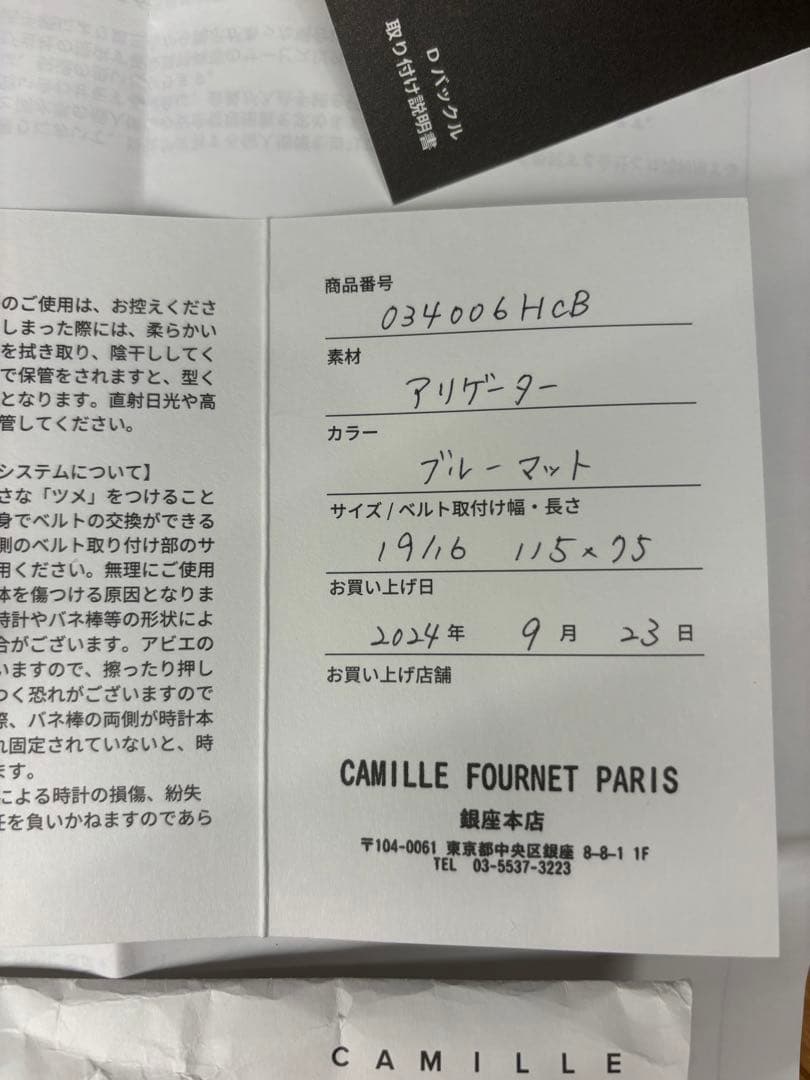 Dバックル
取り付け説明書
のご使用は、お控えくださ
しまった際には、柔らかい
を拭き取り、陰干ししてく
で保管をされますと、型く
となります。直射日光や高
管してください。
システムについて】
さな「ツメ」をつけること
身でベルトの交換ができる
側のベルト取り付け部のサ
用ください。無理にご使用
体を傷つける原因となりま
時計やバネ棒等の形状によ
合がございます。アビエの
いますので、擦ったり押し
つく恐れがございますので
際、バネ棒の両側が時計本
れ固定されていないと、時
ます。
による時計の損傷、紛失
任を負いかねますのであら
商品番号
034006HCB
素材
アリゲーター
カラー
ブルーマット
サイズ / ベルト取付け幅・長さ
19/16 115×75
お買い上げ日
2024年 9月 23日
お買い上げ店舗
CAMILLE FOURNET PARIS
銀座本店
〒104-0061 東京都中央区銀座 8-8-1 1F
TEL 03-5537-3223
CAMILLE